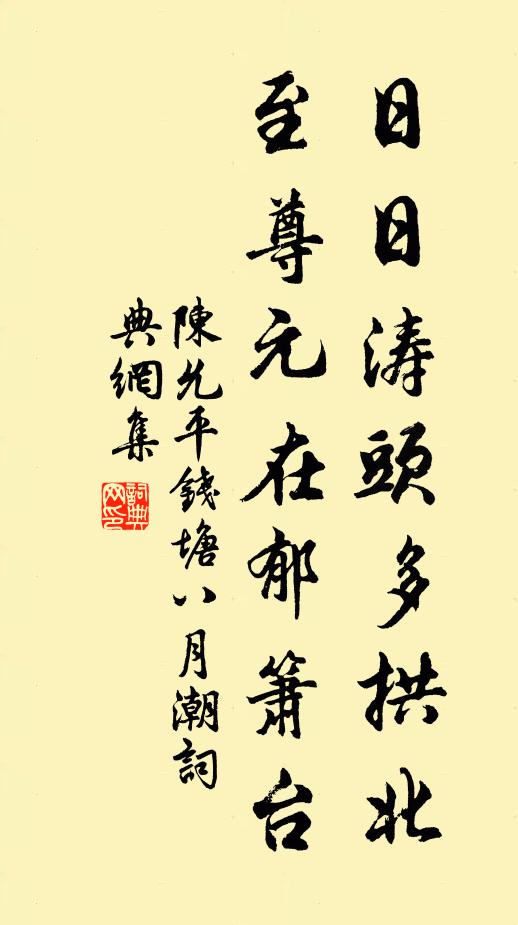 日日涛頭多拱北
至尊元在郁簫台
陳允平錢塘八月潮詞
典網集
詞典
网印